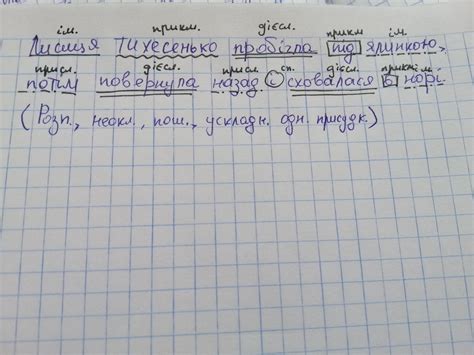 ім. прикм. дієсл. прикм ім.
Лисиця тихесенько пробігла під ялинкою,
присл. дієсл. присл сп. дієсл. прикм ім.
потім повернула назад і сховалася в норі
(Розп., неокл., пош., ускладн. одн. присудк.)